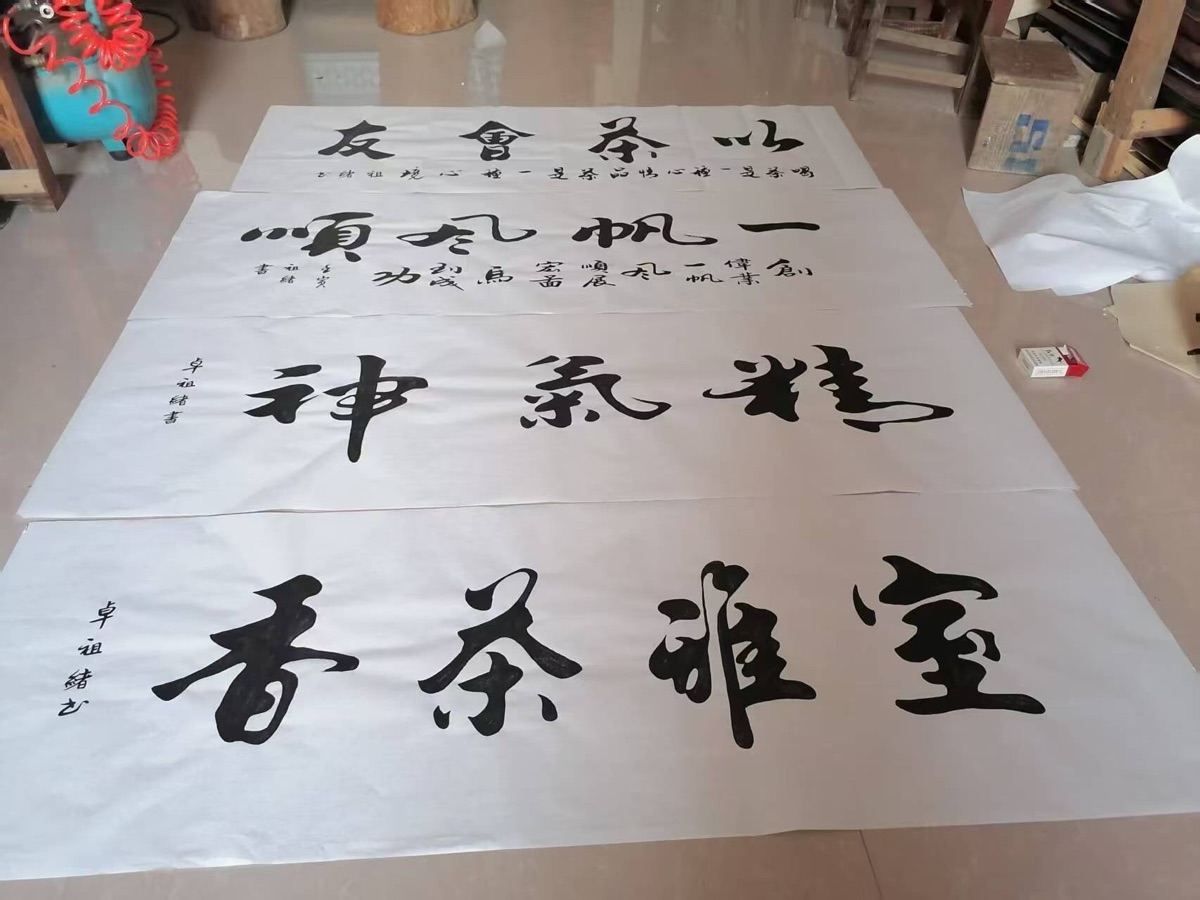 以茶會友
喝茶是一種心情品茶是一種心境祖緒书
一帆风順
創偉業一帆风順展宏啚馬到成功
壬寅祖緒書
精氣神
卓祖緒書
室雅茶香
卓祖緒书